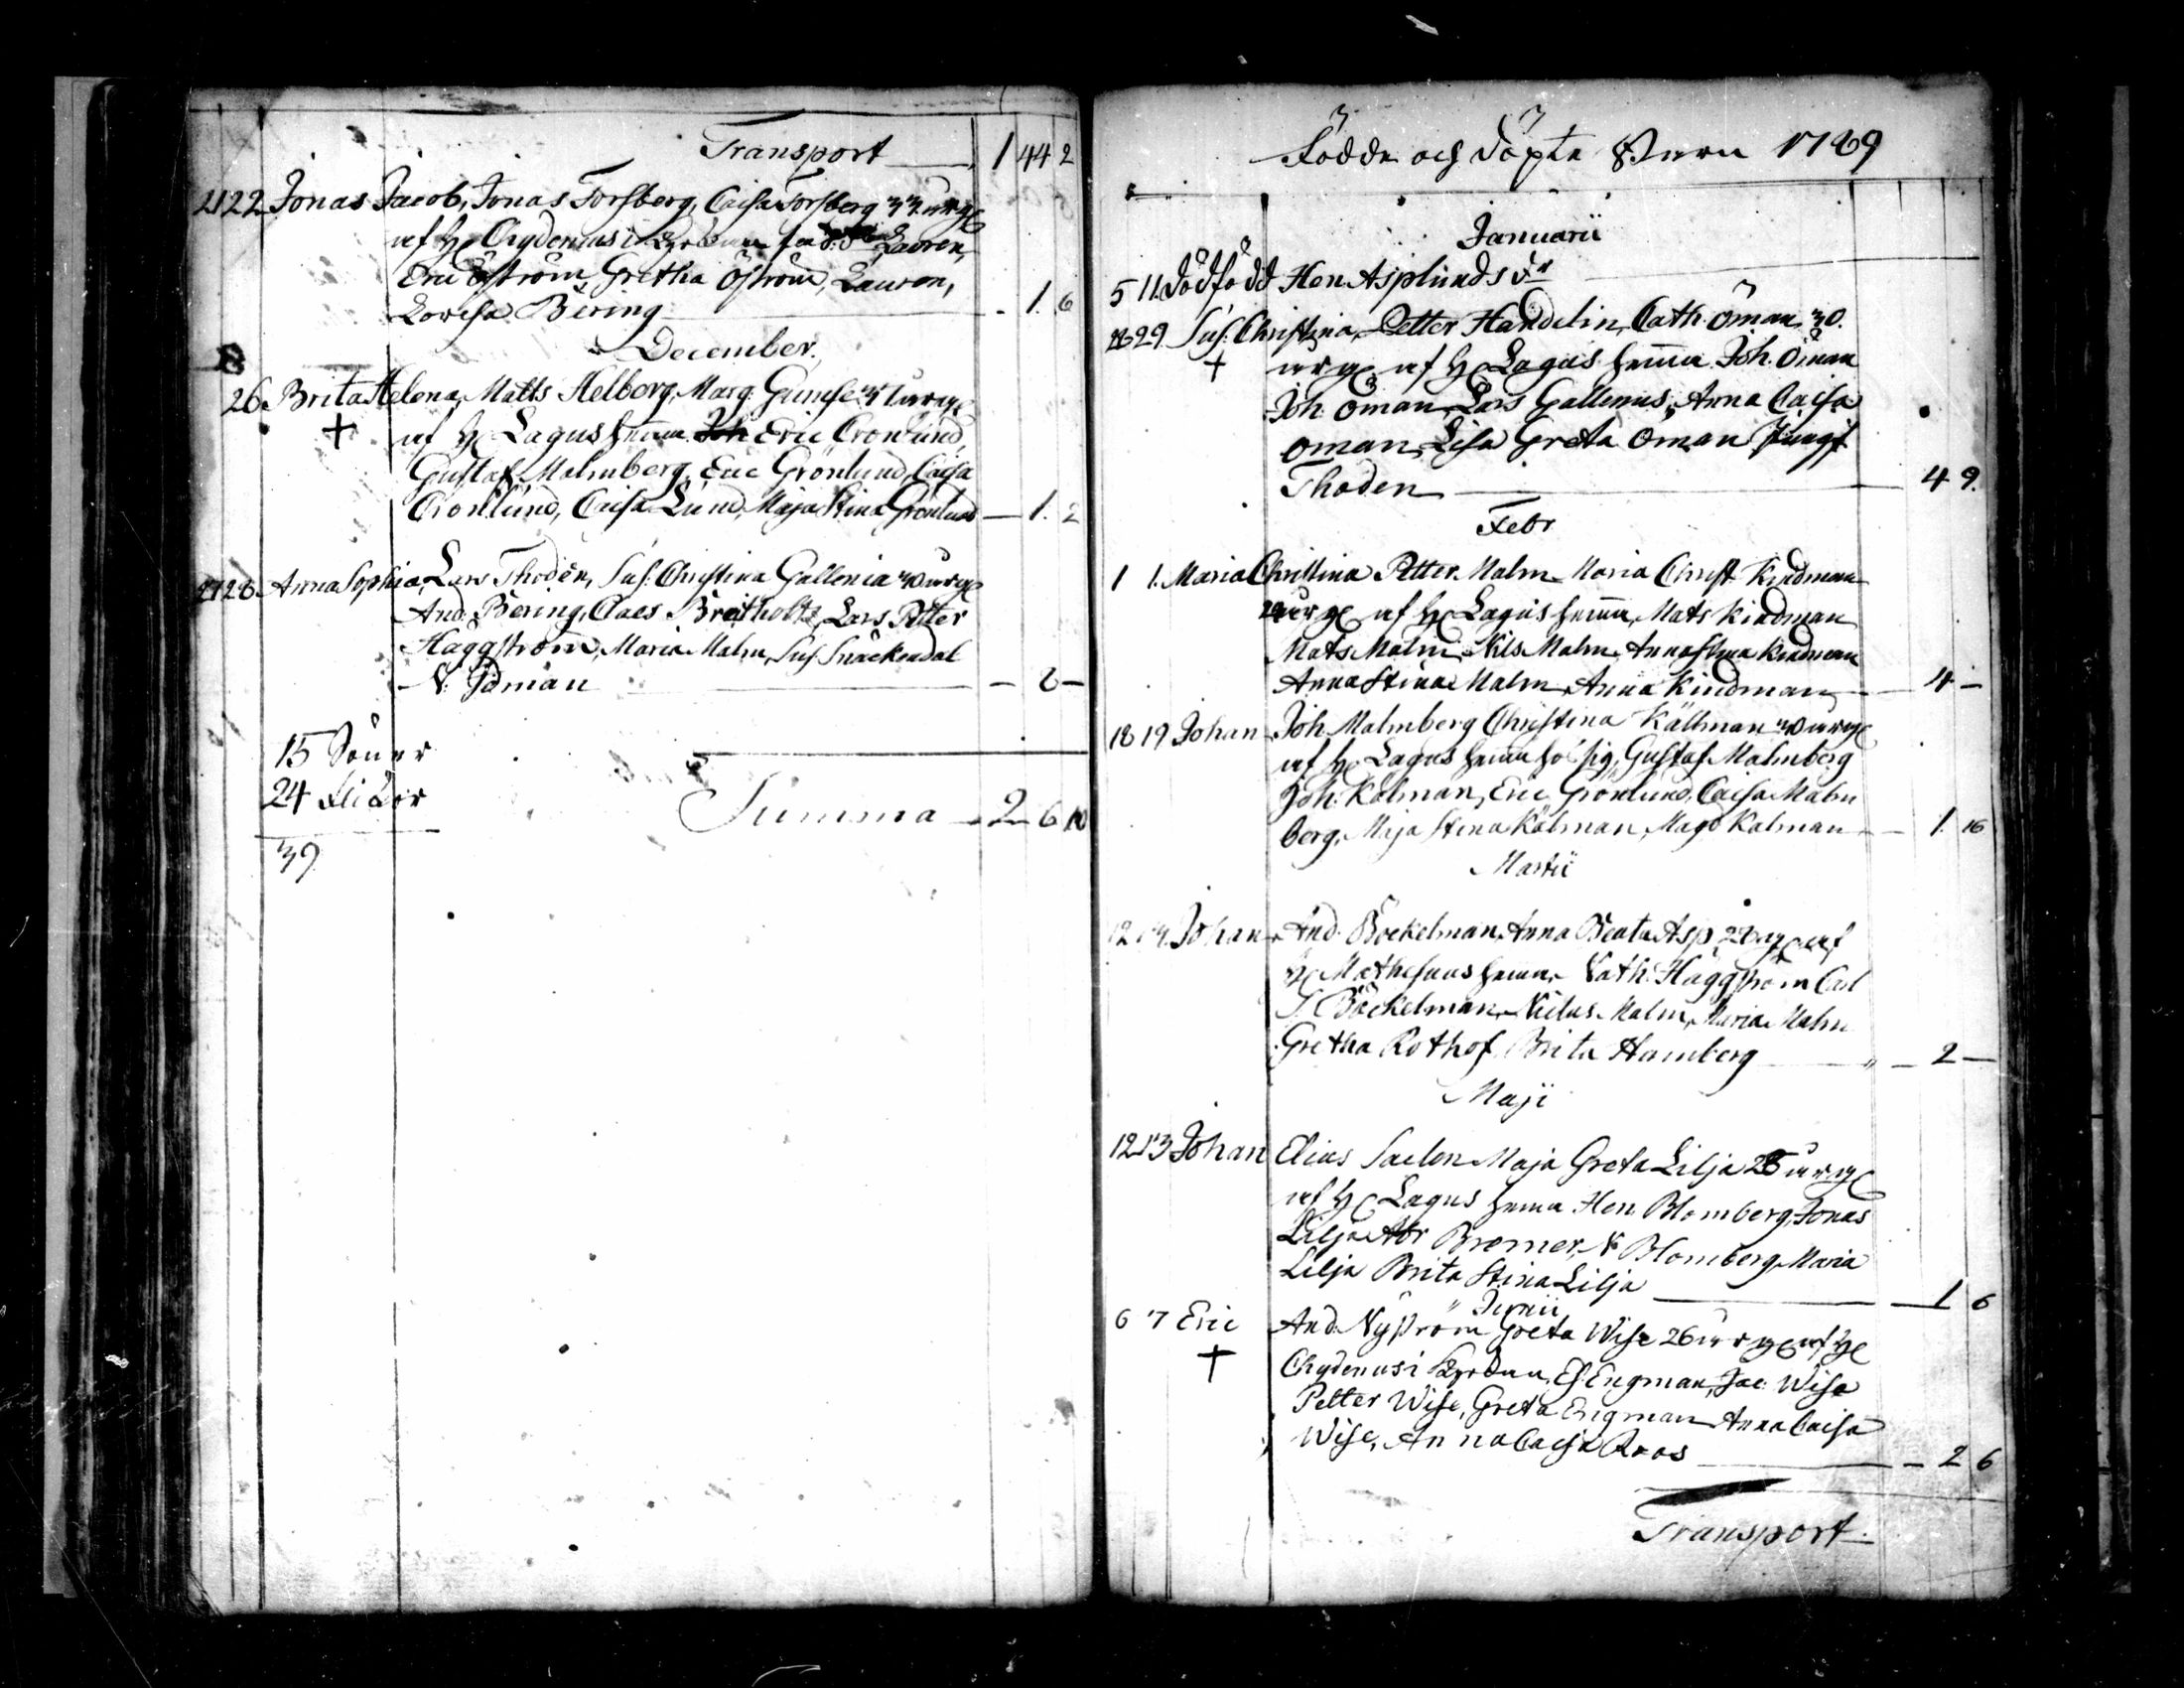 Transport 1 44 2
21 22 Jonas Jacob, Jonas Forsberg, Caisa Forsberg 33 år g
af H Chydenius i Kyrckan Lauren,
Eric Öström, Gretha Öström, Lauren,
Lovisa Bering 1. 6
December.
26. Brita Helena, Matts Helborg, Marg: Gumse 31 år g
af H Lagus hemma Eric Cronlund,
Gustaf Malmberg, Eric Grönlund, Caisa
Cronlund, Caisa Lund, Maja Stina Grönlund 1. 2
27 28 Anna Sophia, Lars Thodén, Sus: Christina Gallenia år g
And: Bering, Claes Breitholtz, Lars Petter
Häggström, Maria Malm, Sus: Snäckendal
N: Idman 2 —
15 Söner
24 Flickor
39
Summa 2 6 10
Födde och Döpte Barn 1789
Januarii
5 11 Dödfödd Hen. Asplunds dr
29 Sus: Christina, Petter Handelin, Cath: Öman 30.
år g af H Lagus hemma Joh. Öman
Joh: Öman, Lars Gallenius, Anna Caisa
Öman, Lisa Greta Öman Jungf
Thoden 4 9.
Febr
1 1. Maria Christina Petter Malm Maria Christ Kindman
år g af H Lagus hemma, Mats Kindman
Mats Malm, Nils Malm, Anna Stina Kindman
Anna Stina Malm, Anna Kindman 4 —
18 19 Johan Joh Malmberg Christina Källman år g
af H Lagus hemma hos sig, Gustaf Malmberg
Joh: Kälman, Eric Grönlund, Caisa Malm
berg, Maja Stina Kälman, Magd Kalman 1. 16
Martii
12 14 Johan And: Böckelman, Anna Beata Asp, 22 år g af
H Mathesius hemma Nath: Häggström Carl
J. Böckelman, Niclas Malm, Maria Malm
Gretha Rothof, Brita Hamberg 2 —
Maji
12 13 Johan Elias Saelen Maja Greta Lilja 28 år g
af H Lagus hema Hen Blomberg, Jonas
Lilja Abr Bremer, N Blomberg, Maria
Lilja Brita Stina Lilja 1 6
Junii
6 7 Eric And. Nyström Greta Wise 26 år g af H
Chydenius i Kyrckan, Es Engman, Jac: Wise
Petter Wise, Greta Engman Anna Caisa
Wise, Anna Caisa Roos 2 6
Transport